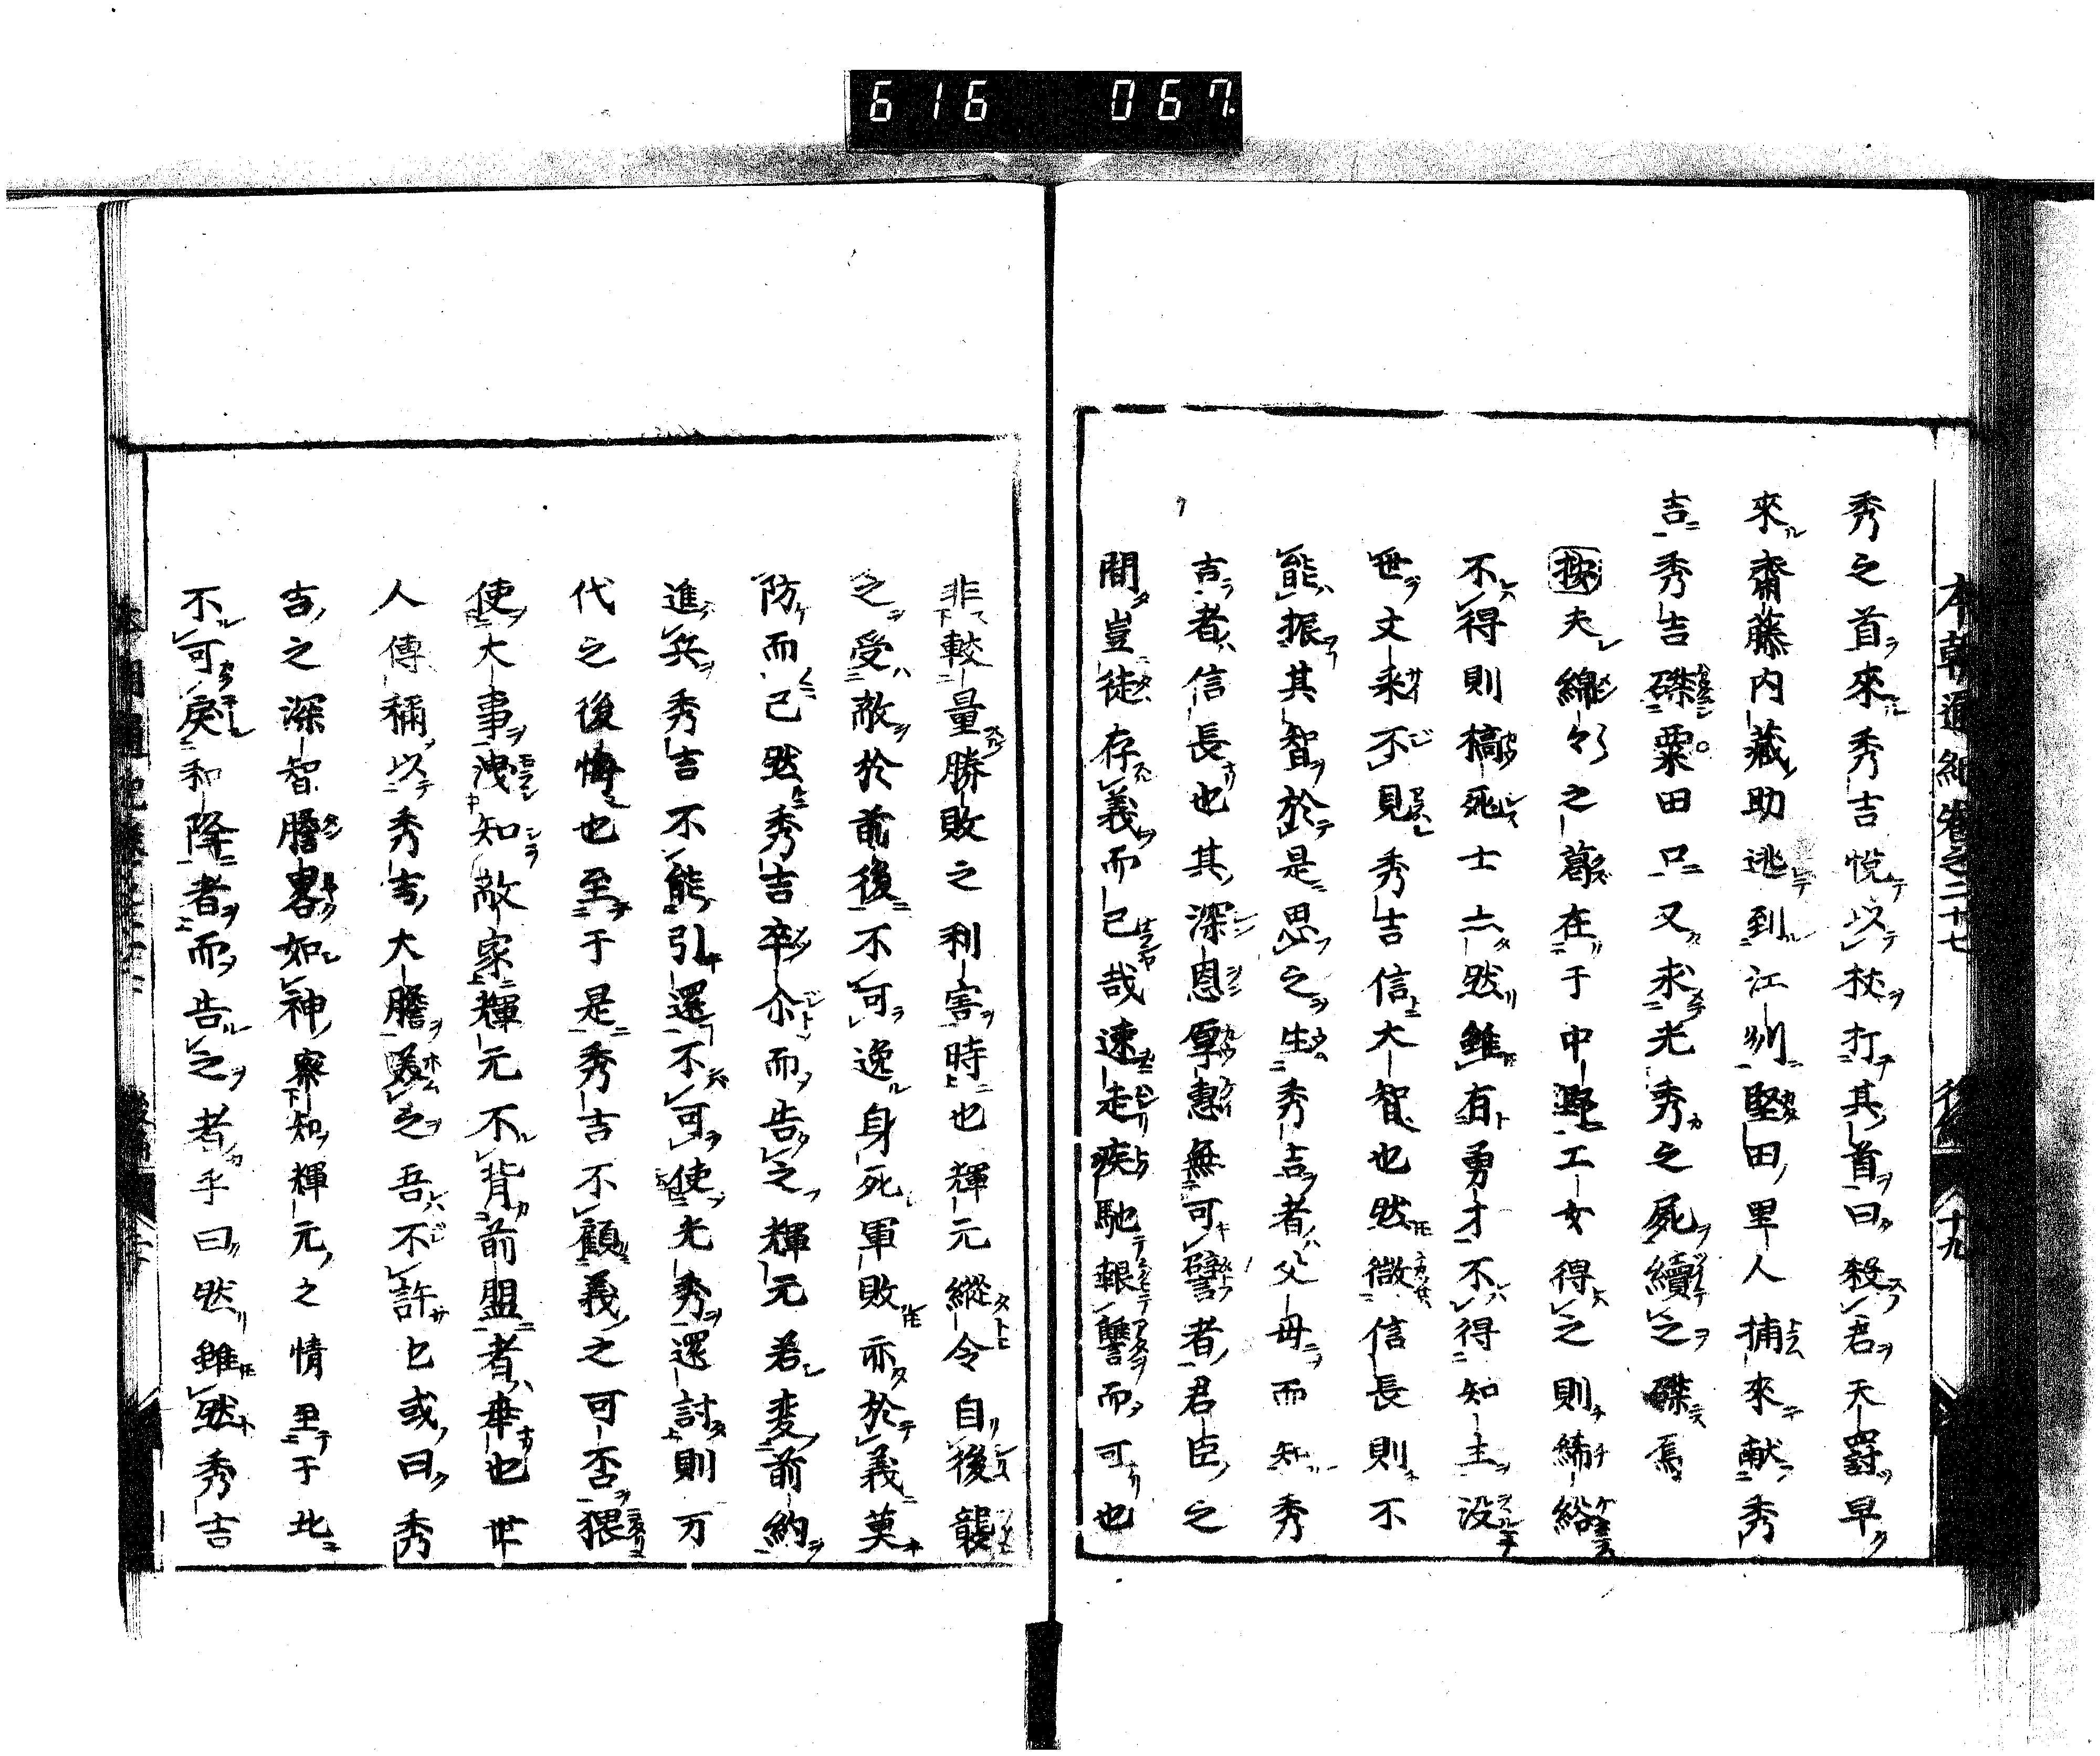 616 067
本朝通紀卷之二十七 後 十九
秀之首來秀吉悅以杖打其首曰殺君天罸早
來齋藤内藏助逃到江刕堅田里人捕來献秀
吉秀吉磔粟田口又求光秀之屍續之磔焉
按夫綿々之葛在于中野工女得之則絺綌
不得則槁死士亦然雖有勇才不得知主没
世丈采不見秀吉信大智也然微信長則不
能振其智於是思之生秀吉者父母而知秀
吉者信長也其深恩厚惠無可譬者君臣之
間豈徒存義而已哉速走疾馳報讐而可也
非較量勝敗之利害時也輝元縱令自後襲
之受敵於前後不可逸身死軍敗亦於義莫
防而已然秀吉卒尒而告之輝元若変前約
進兵秀吉不能引還不可使光秀還討則万
代之後悔也至于是秀吉不顧義之可否猥
使大事洩知敵家輝元不背前盟者幸也世
人傳稱以秀吉大膽羙之吾不許也或曰秀
吉之深智膽畧如神察知輝元之情至于此
不可戾和降者而告之者乎曰然雖然秀吉